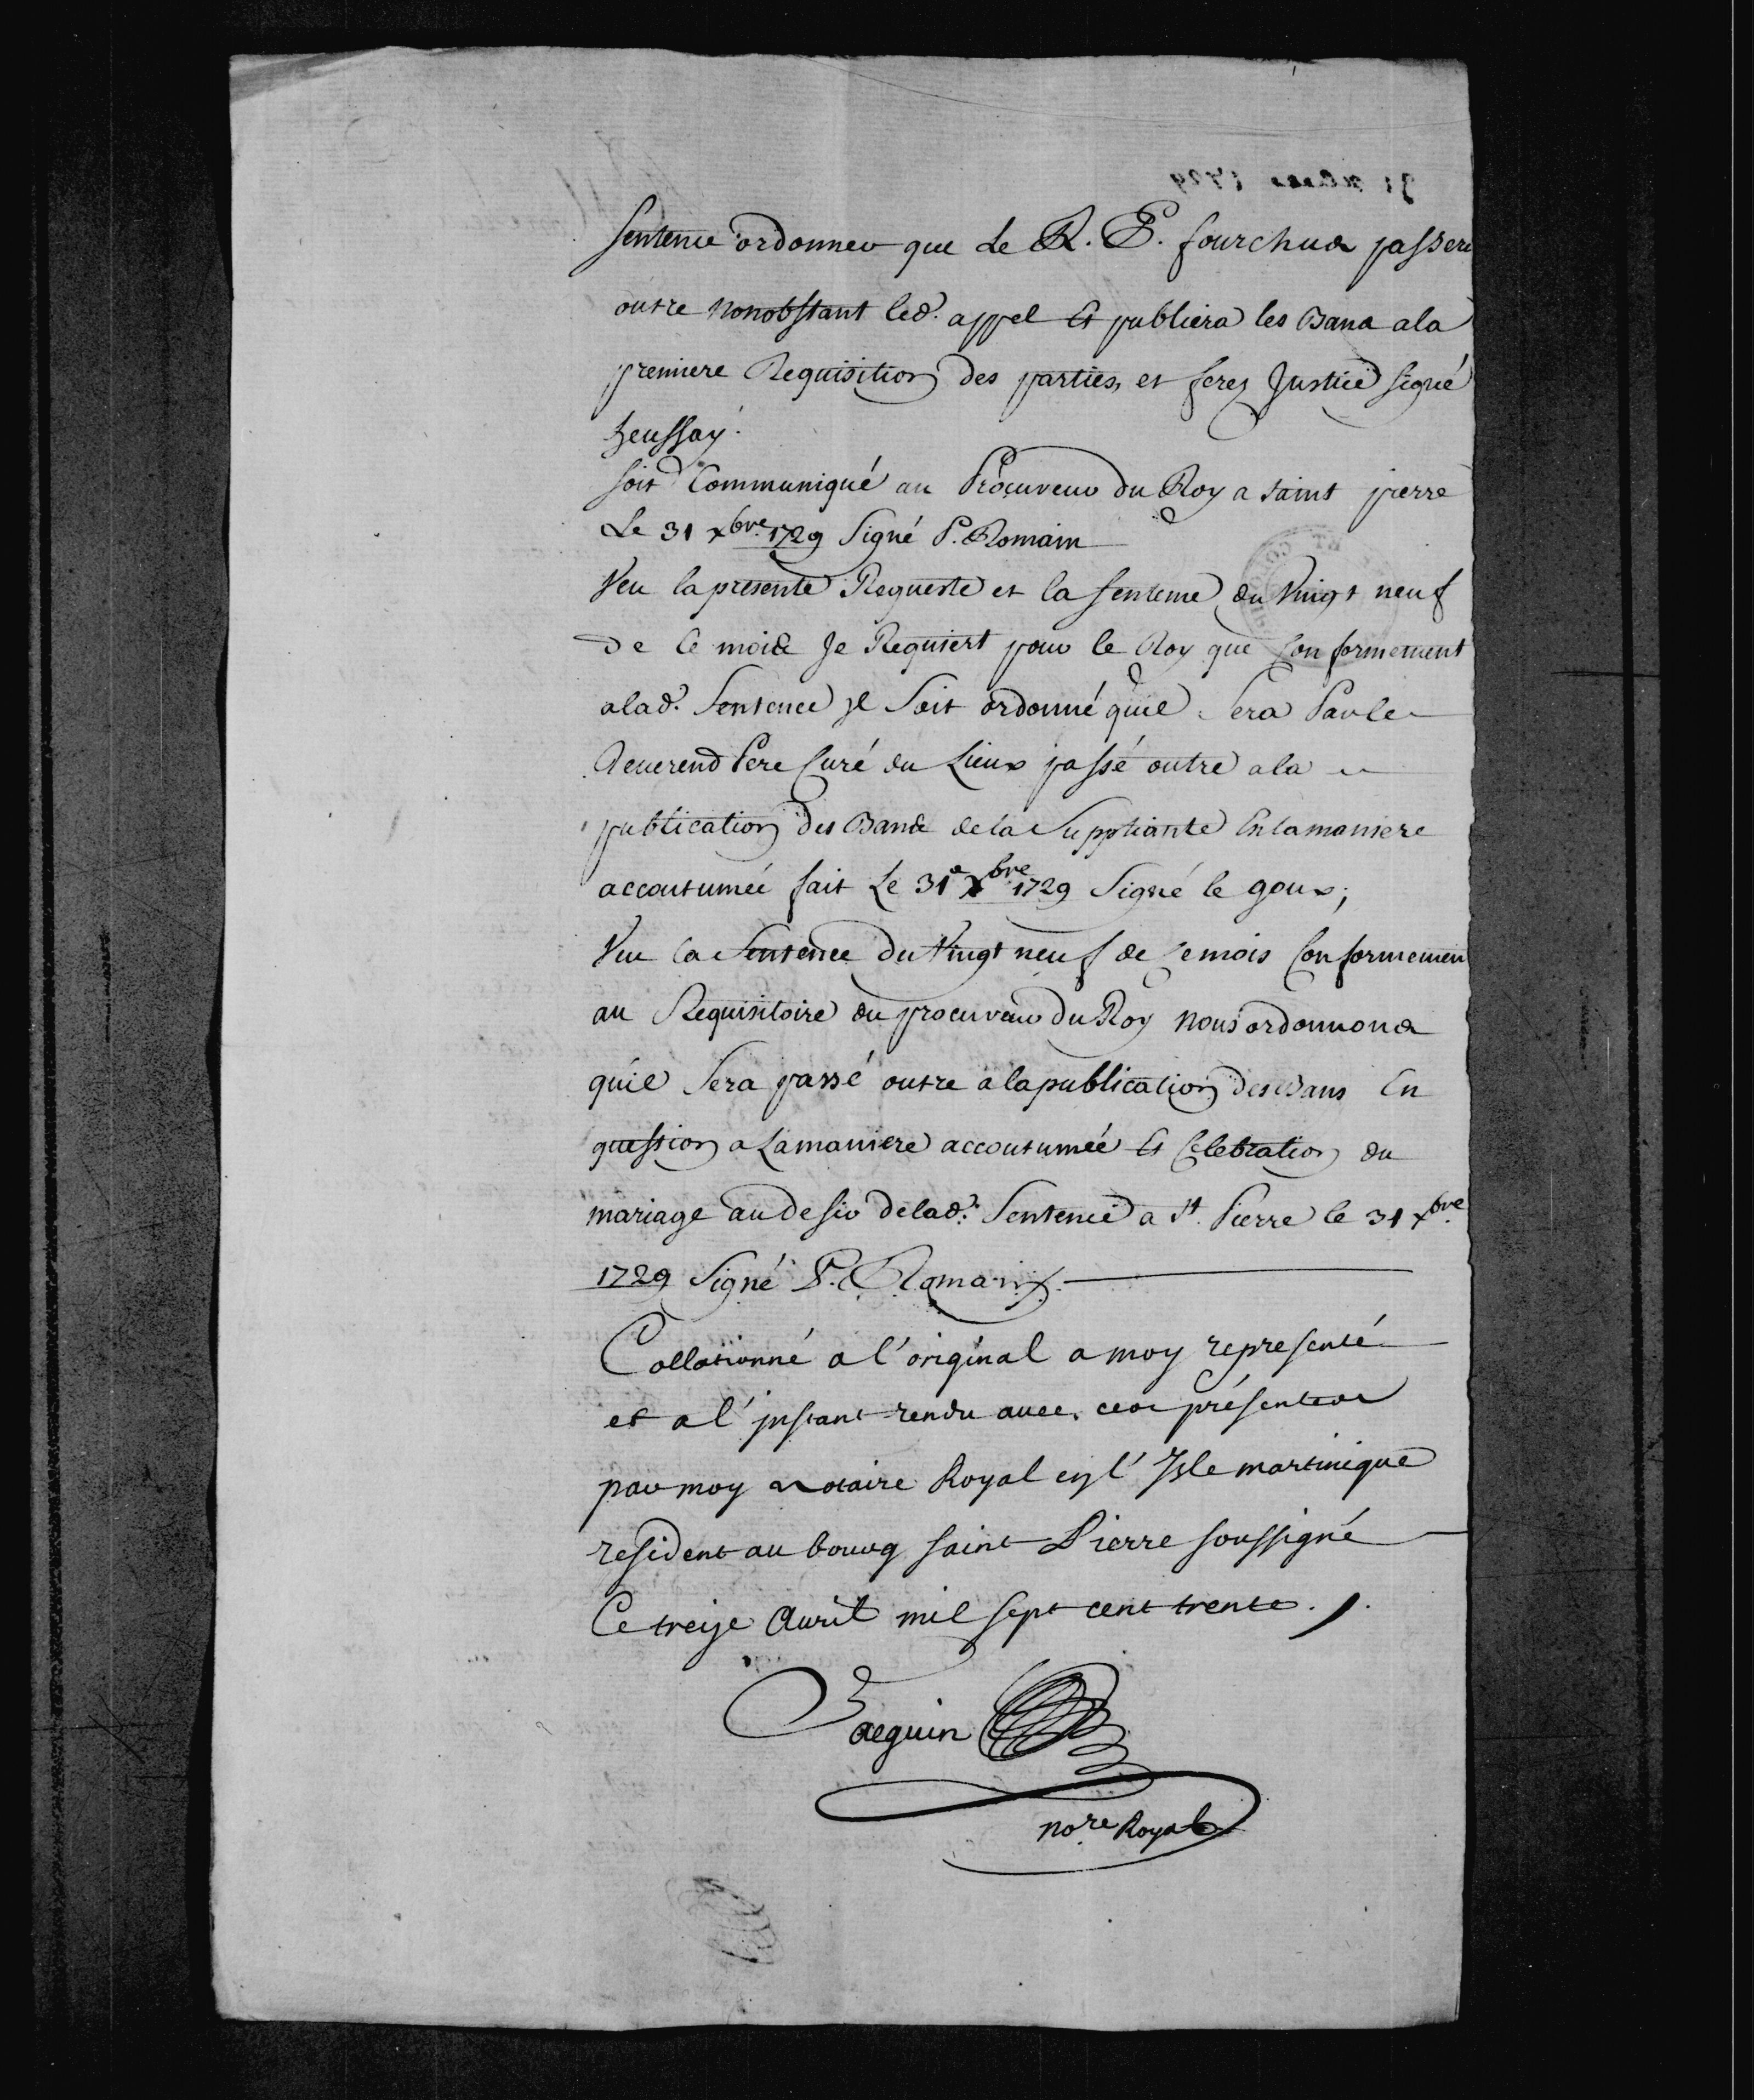 Sentence ordonner que Le R. P. fourchus passera
outre nonobstant led. appel Et publiera les Bans a la
premiere Requisition des parties, et ferez Justice signé
heussay.
soit Communiqué au Procureur du Roy a saint pierre
Le 31 xbre 1729 Signé P. Romain
Veu la presente Requeste et la Sentence du Vingt neuf
de Ce mois Je Requiert pour le Roy que Conformement
a lad. Sentence Jl Soit ordonné quil Sera Par le
Reuerend Pere Curé du Lieux passé outre a la
publication des Bans de la Suppliante En la maniere
accoutumée fait Le 31e xbre 1729 Signé le goux;
Veu la Sentence du Vingt neuf de Ce mois Conformemen
au Requisitoire du procureur Du Roy Nous ordonnons
quil Sera passé outre a la publication des Bans En
question a La maniere accoutumée Et Celebration du
mariage au desir de lad. Sentence a St. Pierre le 31 xbre
1729 Signé P. Romain
Collationné a l'original a moy representé
et a l'jnstant rendu auec ces présentes
par moy Notaire Royal en l'Isle martinique
resident au bourg saint Pierre soussigné
Ce treize Auril mil sept cent trente.
Jaeguin
nore. Royal